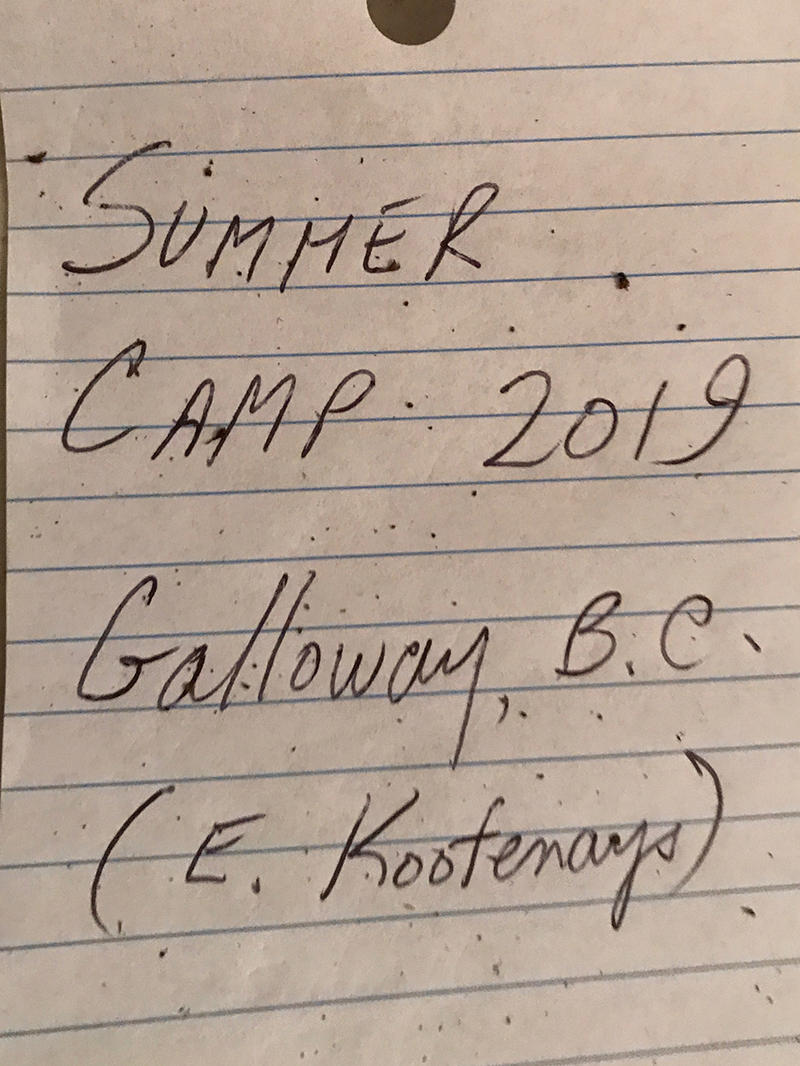 SUMMER
CAMP. 2019
Galloway, B.C.
(E. Kootenays)